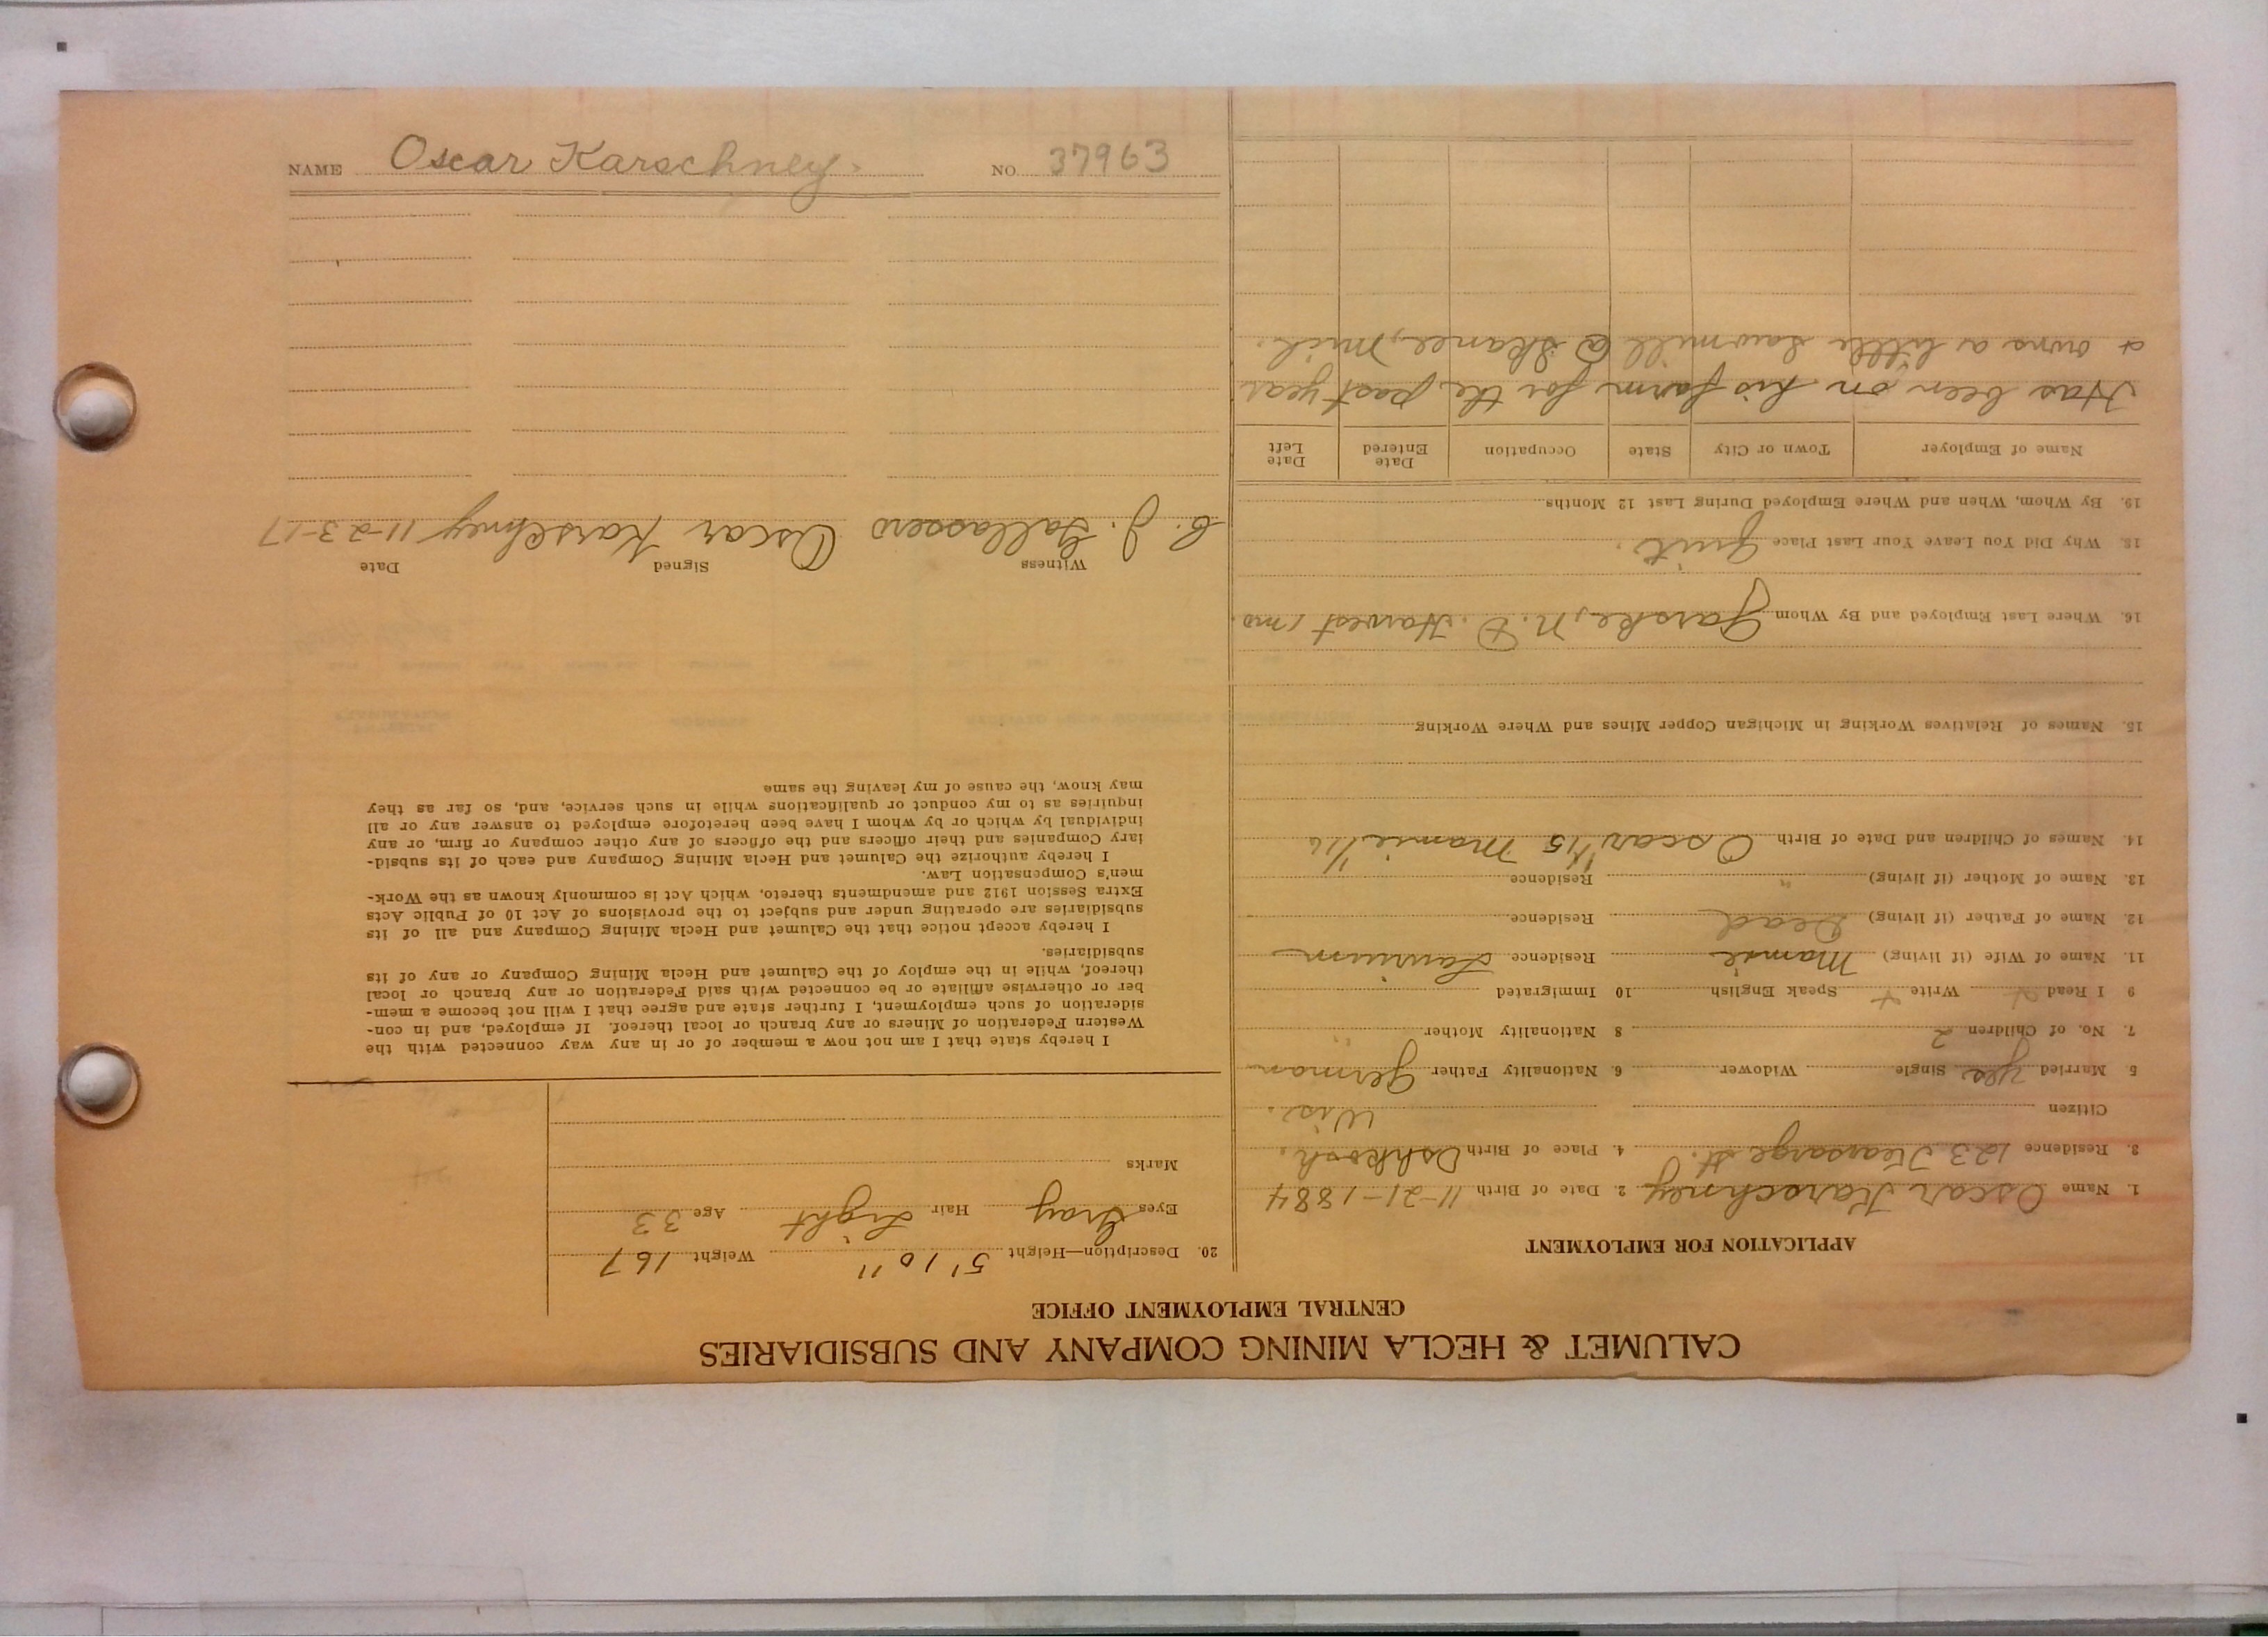 CALUMET & HECLA MINING COMPANY AND SUBSIDIARIES
CENTRAL EMPLOYMENT OFFICE
APPLICATION FOR EMPLOYMENT
1. Name Oscar Karschney 2. Date of Birth 11-21-1884
3. Residence 123 Kearsarge St. 4. Place of Birth Oshkosh,
Citizen Wis.
5 Married Yes Single Widower 6. Nationality Father German
7. No. of Children 2 8 Nationality Mother "
9 I Read + Write + Speak English 10 Immigrated
11. Name of Wife (if living) Mamie Residence Laurium
12. Name of Father (if living) Dead Residence
13. Name of Mother (if living) " Residence
14. Names of Children and Date of Birth Oscar 1/15 Mamie 1/16
15. Names of Relatives Working in Michigan Copper Mines and Where Working
16. Where Last Employed and By Whom Garske, N. D. Harvest 1 mo.
18. Why Did You Leave Your Last Place Quit.
19. By Whom, When and Where Employed During Last 12 Months
Name of Employer Town or City State Occupation Date Entered Date Left
Has been on his farm for the past year
+ owns a little sawmill @ Skanee, Mich.
20. Description—Height 5' 10" Weight 167
Eyes Gray Hair Light Age 33
Marks
I hereby state that I am not now a member of or in any way connected with the
Western Federation of Miners or any branch or local thereof. If employed, and in con-
sideration of such employment, I further state and agree that I will not become a mem-
ber or otherwise affiliate or be connected with said Federation or any branch or local
thereof, while in the employ of the Calumet and Hecla Mining Company or any of its
subsidiaries.
I hereby accept notice that the Calumet and Hecla Mining Company and all of its
subsidiaries are operating under and subject to the provisions of Act 10 of Public Acts
Extra Session 1912 and amendments thereto, which Act is commonly known as the Work-
men's Compensation Law.
I hereby authorize the Calumet and Hecla Mining Company and each of its subsid-
iary Companies and their officers and the officers of any other company or firm, or any
individual by which or by whom I have been heretofore employed to answer any or all
inquiries as to my conduct or qualifications while in such service, and, so far as they
may know, the cause of my leaving the same
Witness Signed Date
J. Oscar Karschney 11-23-17
NAME Oscar Karschney. NO. 37963